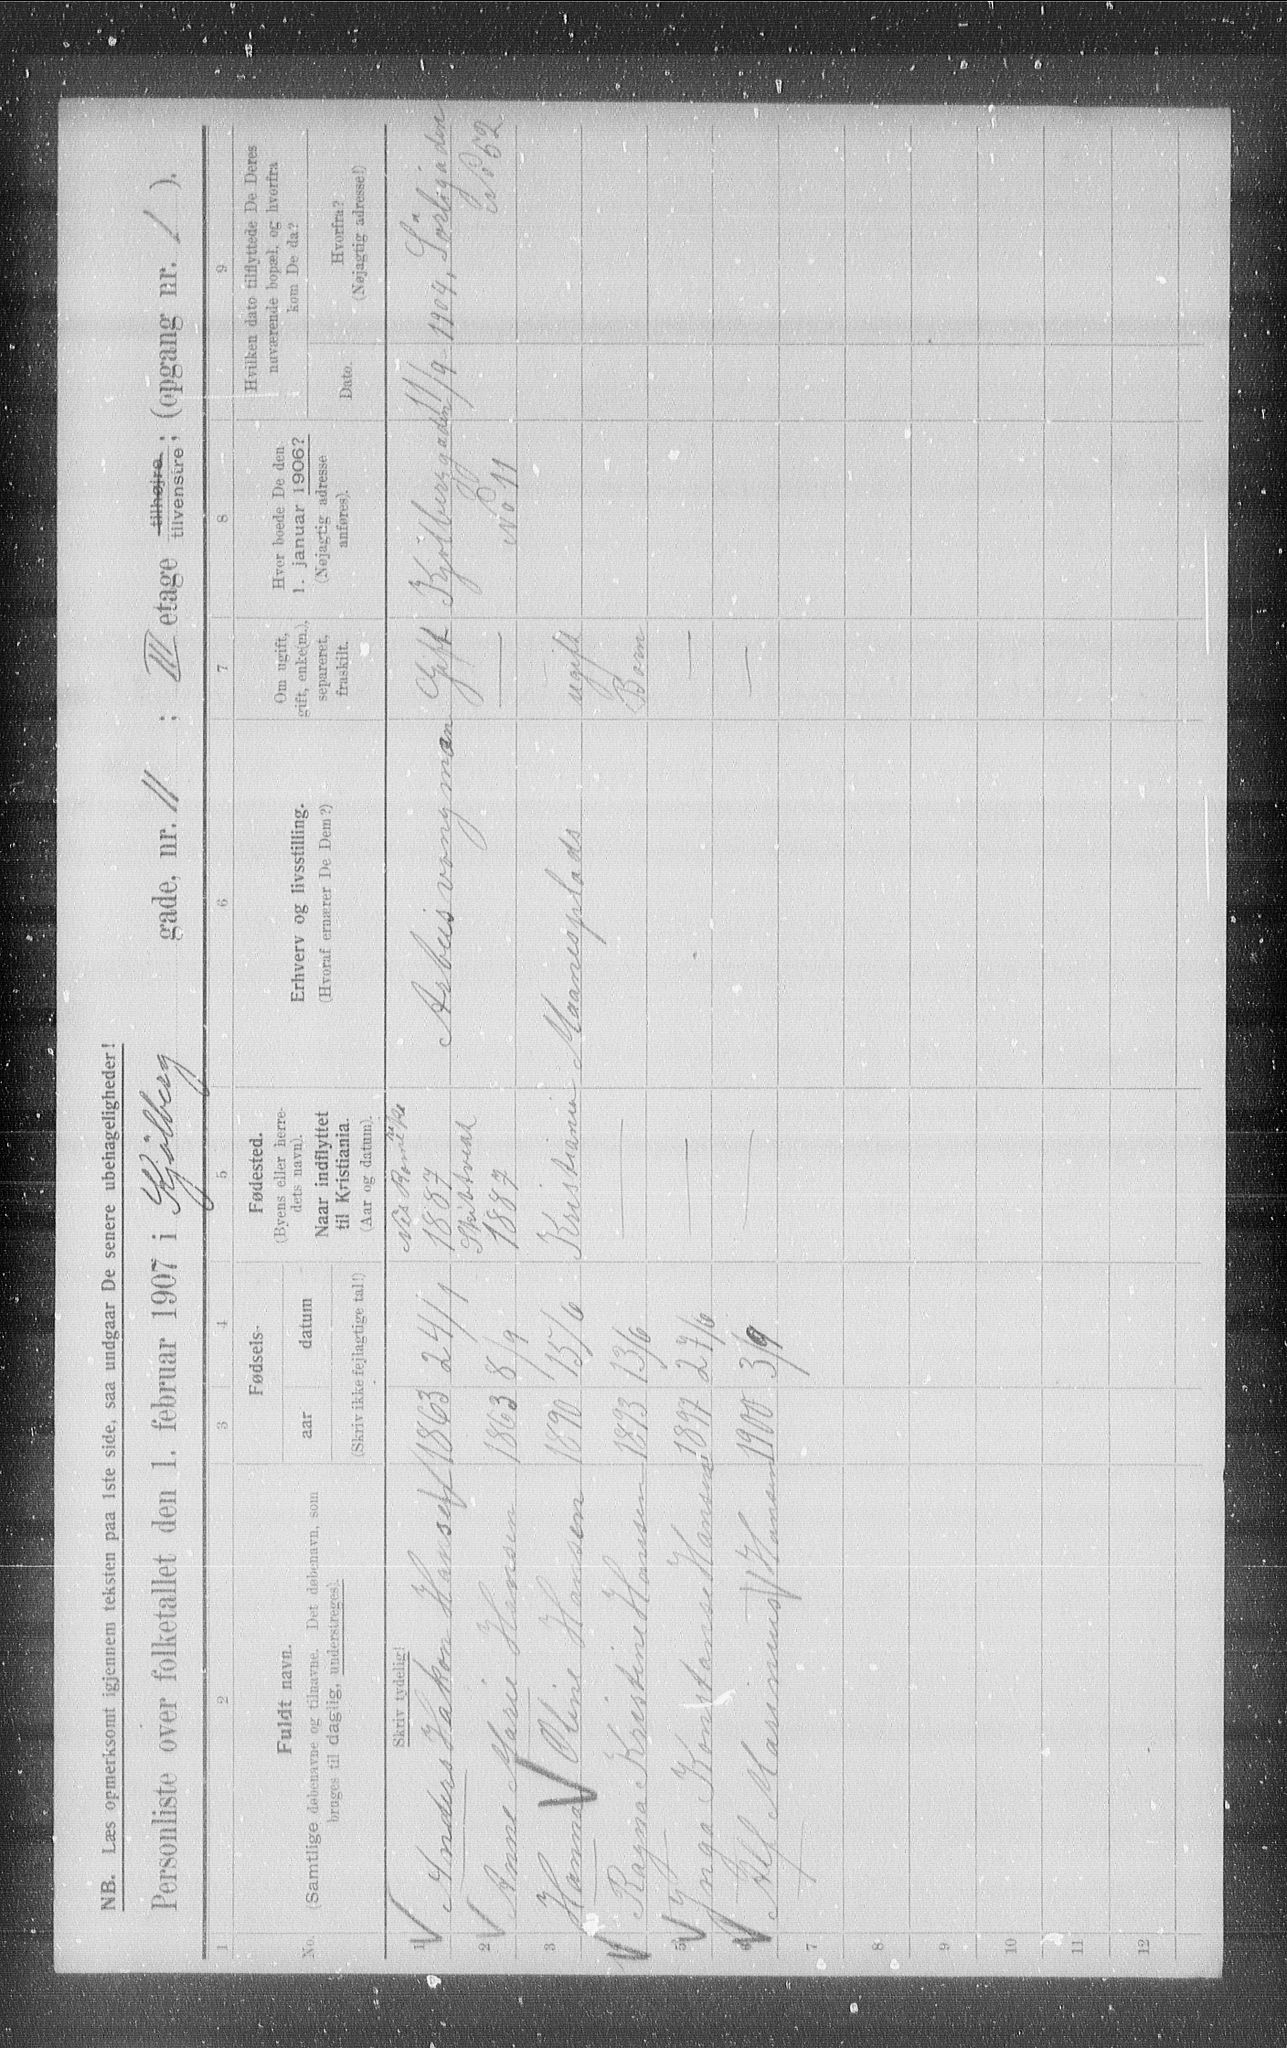 NB. Læs opmerksomt igjennem teksten paa 1ste side, saa undgaar De senere ubehageligheder!
Personliste over folketallet den 1. februar 1907 i Kjølberg gade, nr. 11 ; III etage tilhøjre tilvenstre; (opgang nr. 1 ).
1 2 3 4 5 6 7 8 9
No.
Fuldt navn.
(Samtlige døbenavne og tilnavne. Det døbenavn, som
bruges til daglig, understreges).
Fødsels-
aar datum
(Skriv ikke fejlagtige tal!)
Fødested.
(Byens eller herre-
dets navn).
Naar indflyttet
til Kristiania.
(Aar og datum).
Erhverv og livsstilling.
(Hvoraf ernærer De Dem?)
Om ugift,
gift, enke(m.),
separeret,
fraskilt.
Hvor boede De den
1. januar 1906?
(Nøjagtig adresse
anføres).
Hvilken dato tilflyttede De Deres
nuværende bopæl, og hvorfra
kom De da?
Dato.
Hvorfra?
(Nøjagtig adresse!)
Skriv tydelig!
1 Anders Hakon Hansen 1863 24/1 1887 Gift Kjølberggaden 1/9 1904, Sørligaden
2 Anne Marie Hansen 1863 8/9 1887 — No 11 No 52
3 Hanna Oline Hansen 1890 15/6 Kristiania Maanesplads ugift
Ragna Kristine Hansen 1893 13/6 — Barn
5 Inga Konstanse Hansen 1897 27/6 — —
6 Alf Marinius Hansen 1900 3/9 — —
7
8
9
10
11
12